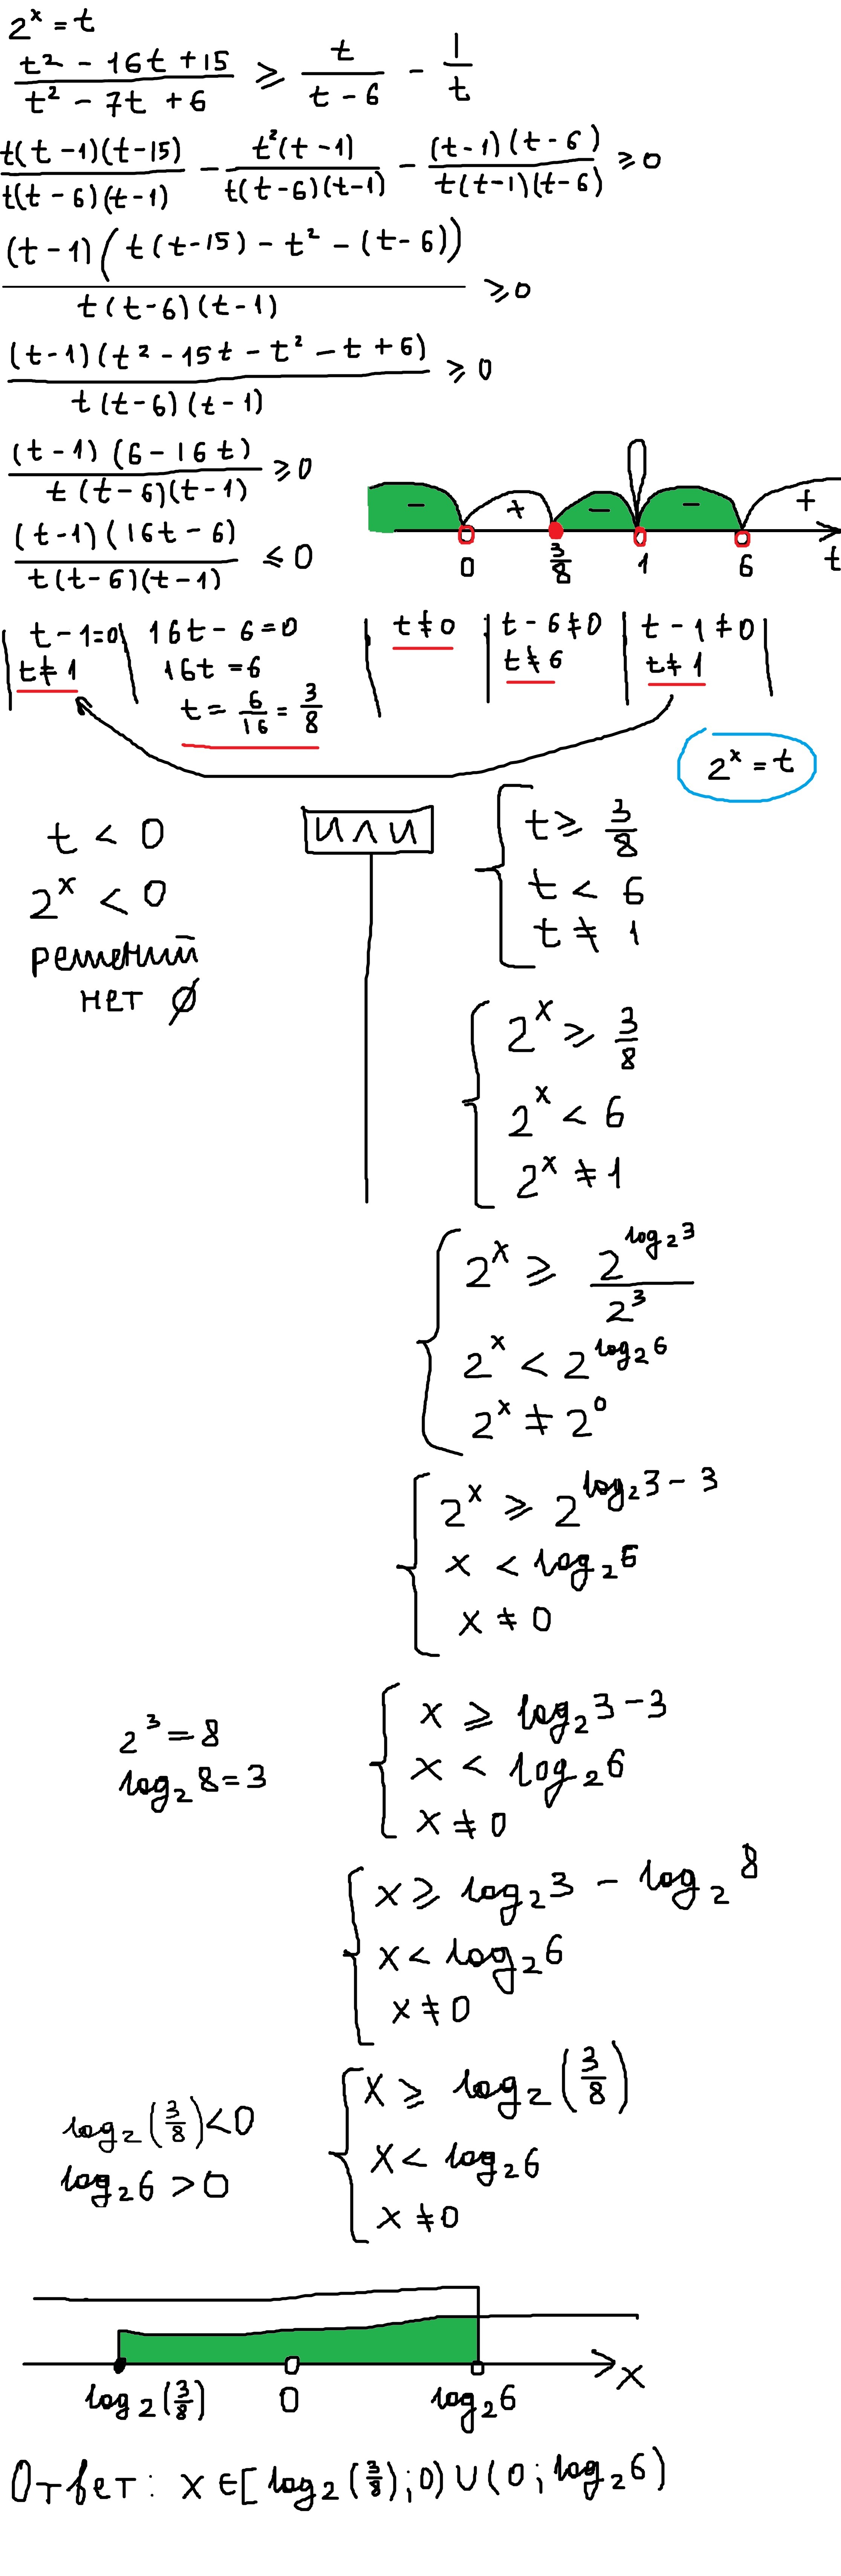 2^x = t
(t² - 16t + 15)/(t² - 7t + 6) ≥ t/(t - 6) - 1/t
t(t - 1)(t - 15)/(t(t - 6)(t - 1)) - t²(t - 1)/(t(t - 6)(t - 1)) - (t - 1)(t - 6)/(t(t - 1)(t - 6)) ≥ 0
(t - 1)(t(t - 15) - t² - (t - 6))/(t(t - 6)(t - 1)) ≥ 0
(t - 1)(t² - 15t - t² - t + 6)/(t(t - 6)(t - 1)) ≥ 0
(t - 1)(6 - 16t)/(t(t - 6)(t - 1)) ≥ 0
(t - 1)(16t - 6)/(t(t - 6)(t - 1)) ≤ 0
- + - - +
0 3/8 1 6 t
t - 1 = 0 | 16t - 6 = 0 | t ≠ 0 | t - 6 ≠ 0 | t - 1 ≠ 0
t ≠ 1 | 16t = 6 | t ≠ 6 | t ≠ 1
t = 6/16 = 3/8
2^x = t
t < 0
2^x < 0
решений
нет ∅
ИЛИ
t ≥ 3/8
t < 6
t ≠ 1
2^x ≥ 3/8
2^x < 6
2^x ≠ 1
2^x ≥ 2^(log₂3)/2³
2^x < 2^(log₂6)
2^x ≠ 2^0
2^x ≥ 2^(log₂3 - 3)
x < log₂6
x ≠ 0
2³ = 8
log₂8 = 3
x ≥ log₂3 - 3
x < log₂6
x ≠ 0
x ≥ log₂3 - log₂8
x < log₂6
x ≠ 0
log₂(3/8) < 0
log₂6 > 0
x ≥ log₂(3/8)
x < log₂6
x ≠ 0
log₂(3/8) 0 log₂6 x
Ответ: x ∈ [log₂(3/8); 0) ∪ (0; log₂6)